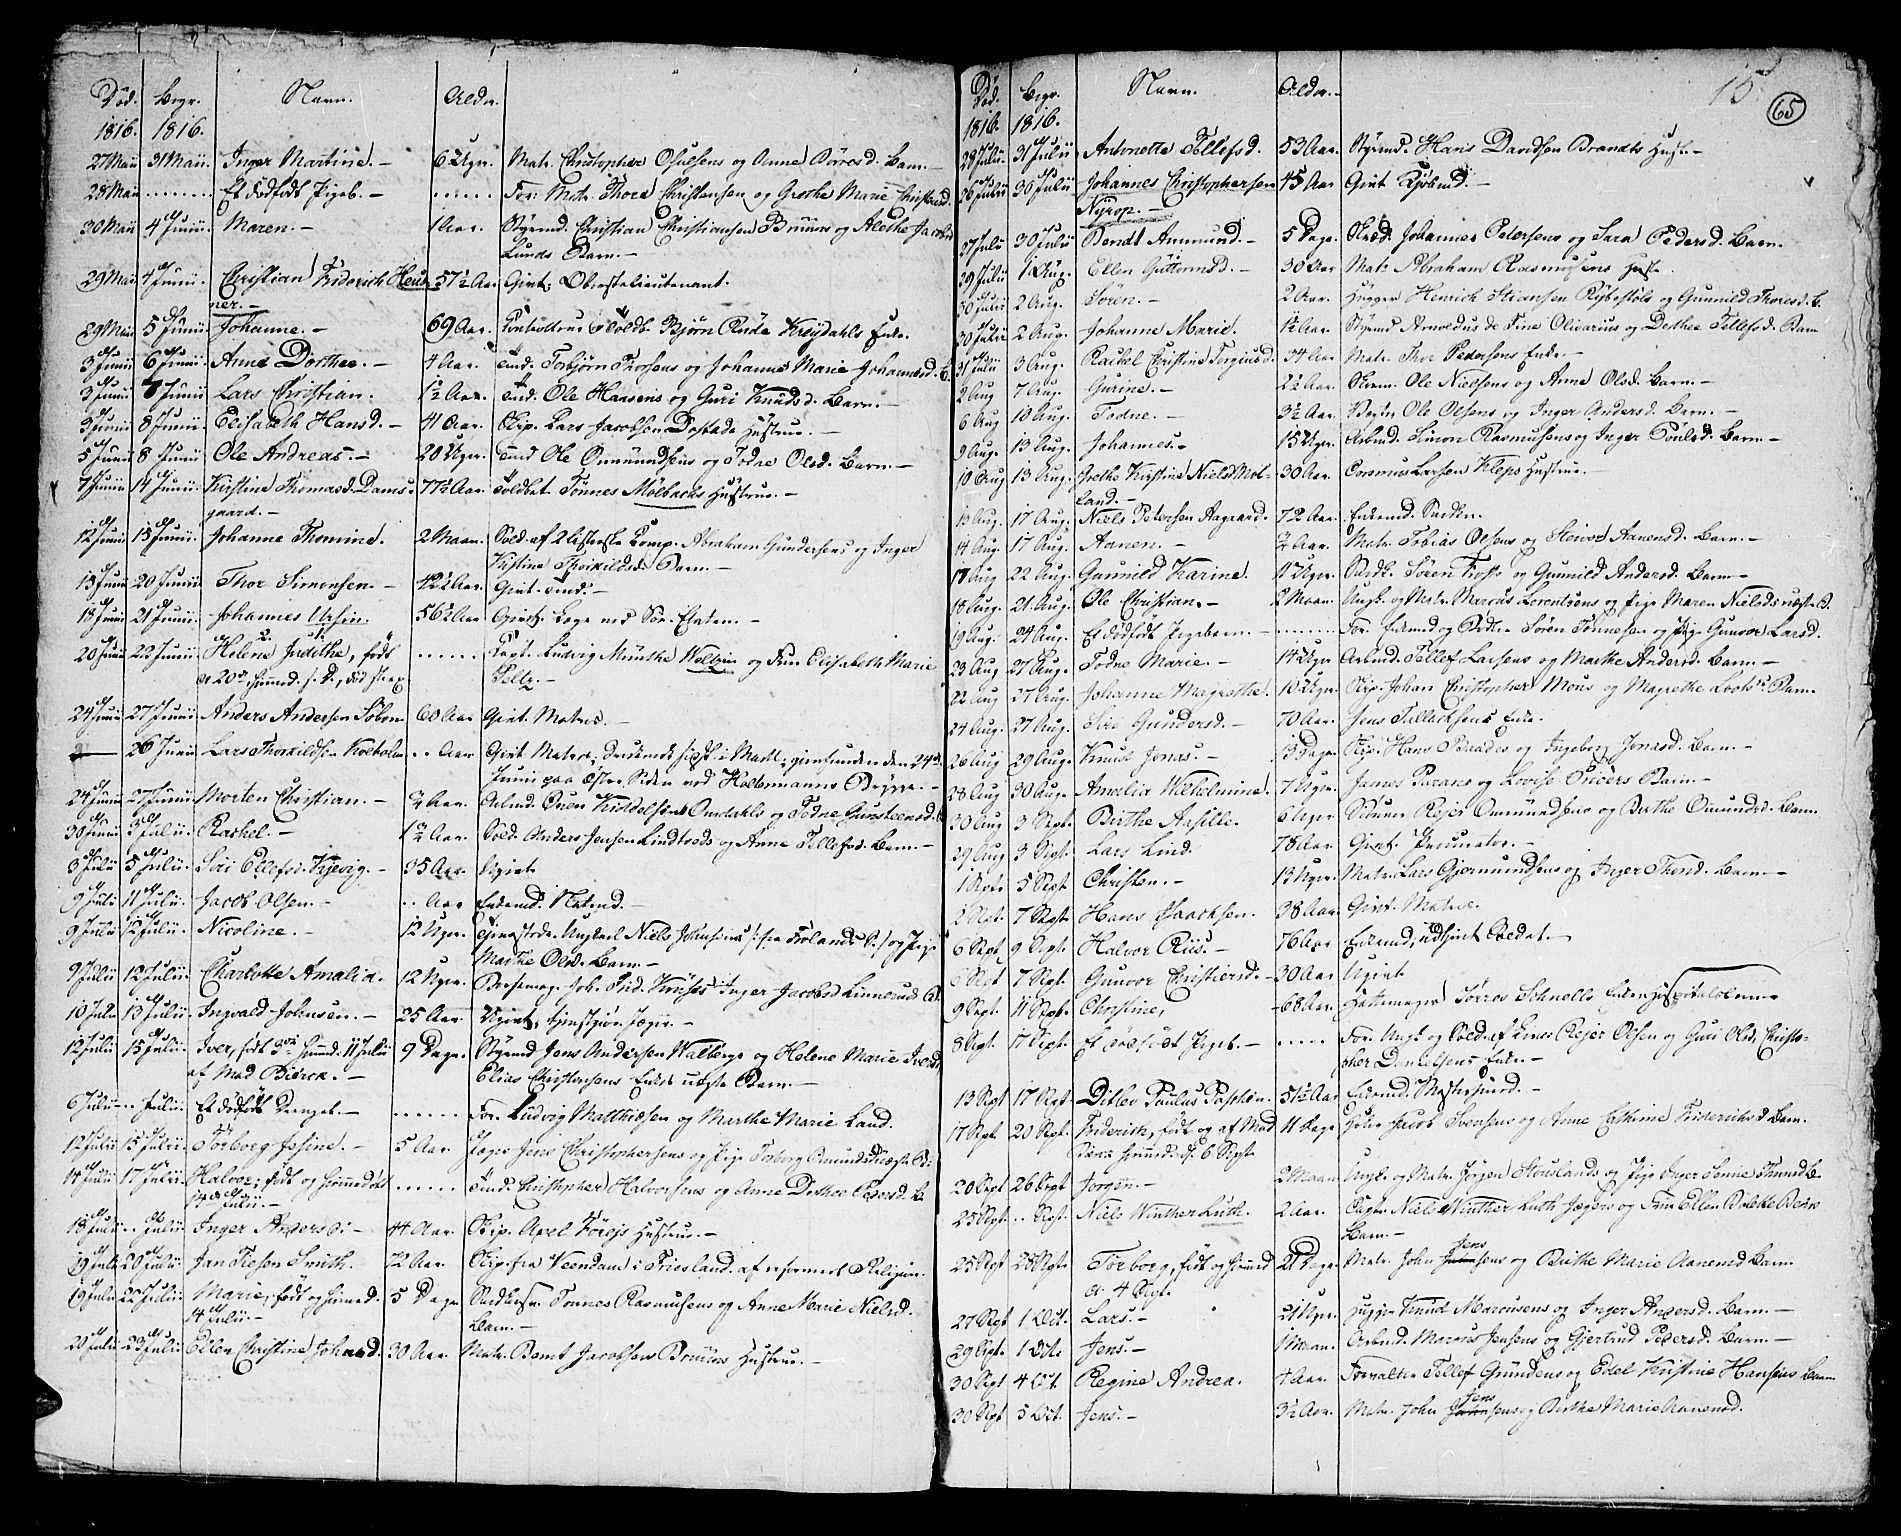 Død. Begr. Navn. Alder.
1816. 1816.
27 Maii 31 Maii. Inger Martine. - 6 Uger. Matr. Christopher Osulsens og Anne Børesd. Barn. -
28 Maii ...... Et dødfødt Pigeb. - ..... For: Matr. Thore Christensen og Grethe Marie Christensd.
30 Maii 4 Junii. Maren. - 1 Aar. Styrmd. Christian Christiansen Bruuns og Alethe Jacobsd.
Lunds Barn. -
29 Maii 4 Junii. Christian Friderich Heus- 57½ Aar Givt; Oberstelieutenant.
ner. -
29 Maii 5 Junii. Johanne. - 69 Aar. Controlleur Toldb. Bjørn Røde Krøydahls Enke.
3 Junii 6 Junii. Anne Dorthea. - 4 Aar. Tmd. Torbjørn Thorsens og Johanne Marie Johannesd. B.
3 Junii 7 Junii Lars Christian. 1½ Aar. Tmd. Ole Hansens og Guri Knudsd. Barn. -
3 Junii 8 Junii. Elisabeth Hansd. - 41 Aar. Skip. Lars Jacobsen Dostads Hustrue. -
5 Junii 8 Junii. Ole Andreas. - 20 Uger. Tmd Ole Omundsens og Todne Olsd. Barn. -
7 Junii 14 Junii. Kirstine Thomasd. Dams- 77½ Aar. Toldbet. Tønnes Mølbachs Hustrue. -
gaard. -
12 Junii 15 Junii. Johanne Thomine. 2 Maan. Sold. af 2 Listerske Comp. Abraham Gundersens og Inger
Kistine Thorkildsd. Barn. -
15 Junii 20 Junii. Thor Simonsen. - 42½ Aar. Givt. Tmd. -
18 Junii 21 Junii. Johannes Ursin. 56½ Aar Givt. Læge ved Sør. Etaten. -
20 Junii 23 Junii. Helene Judithe, født ...... Capt. Ludvig Munthe Welzin og Frue Elisabeth Marie
Peltz. -
24 Junii 27 Junii. Anders Andersen Sobon 60 Aar Givt. Matros. -
26 Junii Lars Thorkildsen .. Aar Givt Matros; gienfunden den 24de
Junii paa Østre Siden ved Heldermanns Brygge. -
24 Junii 27 Junii Morten Christian. - ¾ Aar. Arbmd. Even Omdahls og Todne Gunsteensd.
30 Junii 3 Julii. Rachel. - 1½ Aar. Sold. Anders Jensen Lindtveds og Anne Tellefsd. Barn. -
3 Julii 5 Julii. Siri Ellefsd. Kjevig. - 35 Aar. Ugivt.
9 Julii 11 Julii. Jacob Olsen. - .. Aar Enkemd.
9 Julii 12 Julii. Nicoline. - 12 Uger. Ungkarl Niels Johnsens og Pige
Marthe Olsd. Barn. -
9 Julii 12 Julii. Charlotte Amalia. 12 Uger. Joh. Frid. Krøses Inger Jacobsd Linnerud
10 Julii 13 Julii. Ingvald Johnsen. - 25 Aar. Ugivt, tjenstgiør. Jæger. -
12 Julii 15 Julii. Iver, født 11 Julii 9 Dage. Styrmd Jens Andersen Walberg og Helene Marie
af Mad Bierck. - Elias Christensens Enkes uægte Barn. -
6 Julii .. Julii. Et dødfødt Drengeb. - ...... For. Ludvig Matthisen og Marthe Marie Land.
12 Julii 15 Julii. Torborg Jesine. - 5 Aar. Jæger Jens Christophersens og Pige Torborg uægte B:
14 Julii 17 Julii. Halvor, født og hjemmedøbt ...... Tmd. Christopher Halvorsens og Anne Dorthea Pedersd. B
14 Julii. -
18 Julii .. Julii. Inger Andersd: - 44 Aar. Skip. Axel Hustrue. -
19 Julii 20 Julii. Jan Tieson Smith. 72 Aar. Skip. fra Veendam i Friesland. af reformert Religion.
19 Julii 20 Julii. Marie, født og hjemmed. 5 Dage Tønnes Rasmusens og Anne Marie Nielsd.
14 Julii. - Barn. -
20 Julii 23 Julii. Ellen Christine Johnsd. 30 Aar. Matr. Bernt Jacobsen Bruuns Hustrue. -
15
65
Død. Begr. Navn. Alder. -
1816. 1816.
28 Julii. 31 Julii Antonette Tellefsd. 53 Aar. Styrmd. Hans Davidsen Brandts Hustr. -
26 Julii 30 Julii Johannes Christophersen 45 Aar Givt Kjøbmd. -
Nyrop. -
27 Julii 30 Julii Bendt Ammund. - 5 Dage. Skræd. Johannes Petersens og Sara Pedersd. Barn.
29 Julii 1 Aug. Ellen Guttormsd. - 30 Aar Matr Abraham Rasmusens Hustr.
30 Julii 2 Aug. Søren. - 2 Aar. Hugger Henrich Steansen og Gunnild Thoresd. B.
30 Julii 2 Aug. Johanne Marie. 1½ Aar. Styrmd Arnoldus de Fine Olivarius og Dorthea Tellefsd. Barn
31 Julii 3 Aug. Rachel Christine Torgiusd. 34 Aar. Matr. Thor Pedersens Enke. -
2 Aug 7 Aug. Gurine. - 2½ Aar. Ole Nielsens og Anne Olsd. Barn. -
6 Aug 10 Aug. Todne. - 3½ Aar. Ole Olsens og Inger Andersd. Barn. -
9 Aug. 13 Aug. Johannes. - 15 Uger. Arbmd. Simon Rasmusens og Inger Poulsd. Barn. -
10 Aug 13 Aug. Grethe Kirstine Niels Mol- 30 Aar. Larsen Kleps Hustrue. -
land. -
13 Aug. 17 Aug. Niels Petersen Aagaard. 72 Aar. Enkemd.
14 Aug. 17 Aug. Aanen. - ½ Aar. Matr Tobias Olsens og Steivor Aanensd. Barn. -
17 Aug 22 Aug. Gunnild Karine. 11 Uger. Søren og Gunnild Andersd. Barn. -
18 Aug. 21 Aug. Ole Christian. - 2 Maan. Ungk. og Matr. Marcus Lorentsens og Pige Maren Nielsds uægte B.
19 Aug. 24 Aug. Et dødfødt Pigebarn. - ........ For. Enkemd og Søren Tønnesen og Pige Gunvor Larsd.
23 Aug 27 Aug. Todne Marie. - 14 Uger Arbmd. Tellef Larsens og Marthe Andersd. Barn. -
22 Aug 27 Aug. Johanne Magrethe. 10 Uger. Skip. Johan Christopher Mous og Magrethe Barn
24 Aug. 27 Aug. Siri Gundersd. - 70 Aar. Jens Tallachsens Enke.
26 Aug 29 Aug. Knud Jonas. - 13 Dage. Skip. Hans Raades og Ingeborg Jonasd. Barn. -
28 Aug 30 Aug. Amalia Wilhelmine. 7 Uger. James Parans og Lovise Pricers Barn. -
30 Aug 3 Sept. Birthe Aasille. 6 Uger Reyer Ommundsens og Birthe Omundsd. Barn.
29 Aug 3 Sept. Lars Lind. 78 Aar. Givt. Procurator. -
1 Sept. 5 Sept Christen. - 13 Uger. Matr. Lars Gjermundsens og Inger Thorsd. Barn. -
2 Sept. 7 Sept. Hans Isaachsen. 38 Aar. Givt. Matros.
6 Sept 9 Sept. Halvor Riis. - 76 Aar Enkemd, udtient Soldat. -
6 Sept 7 Sept. Gunvor Christiersd. - 30 Aar. Ugivt.
9 Sept. 11 Sept. Christine, - 68 Aar. Hattemager Schnells Enke; Hospitalslem
8 Sept. 17 Sept. Et dødfødt Pigeb. - ..... For. Ungk og Sold. af Reyer Olsen og Guri Olsd, Christo-
pher Danielsens Enke. -
13 Sept 17 Sept Ditlev Paulus 51½ Aar Enkemd.
17 Sept 20 Sept. Friderich, født og af Mad 11 Dage Jacob Svensens og Anne Cathrine Friderichsd Barn.
6 Sept
20 Sept 26 Sept Jørgen. - 2 Maan. Ungk. og Matr. Jørgen Stoulands og Pige Inger
25 Sept .. Sept. Niels Winther Luth. 2 Aar. Niels Winther Luth og Frue Ellen
Barn. -
25 Sept 28 Sept. Torborg, født og hjemmd 21 Dage. Matr. John Jens sens og Birthe Marie Aanensd Barn
d. 4 Sept.
27 Sept 1 Oct. Lars. - 21 Uger. Hugger Knud Marcusens og Inger Andersd. Barn. -
29 Sept. 1 Oct. Jens. - 1 Maan. Arbmd. Marcus Jensens og Gjertrud Pedersd. Barn. -
30 Sept 4 Oct. Regine Andrea. 4 Aar. Forvalter Tellef Grundens og Edel Kristine Hansens Barn
30 Sept 5 Oct. Jens. - 3½ Aar. Matr. John Jens sens og Birthe Marie Aanensd.